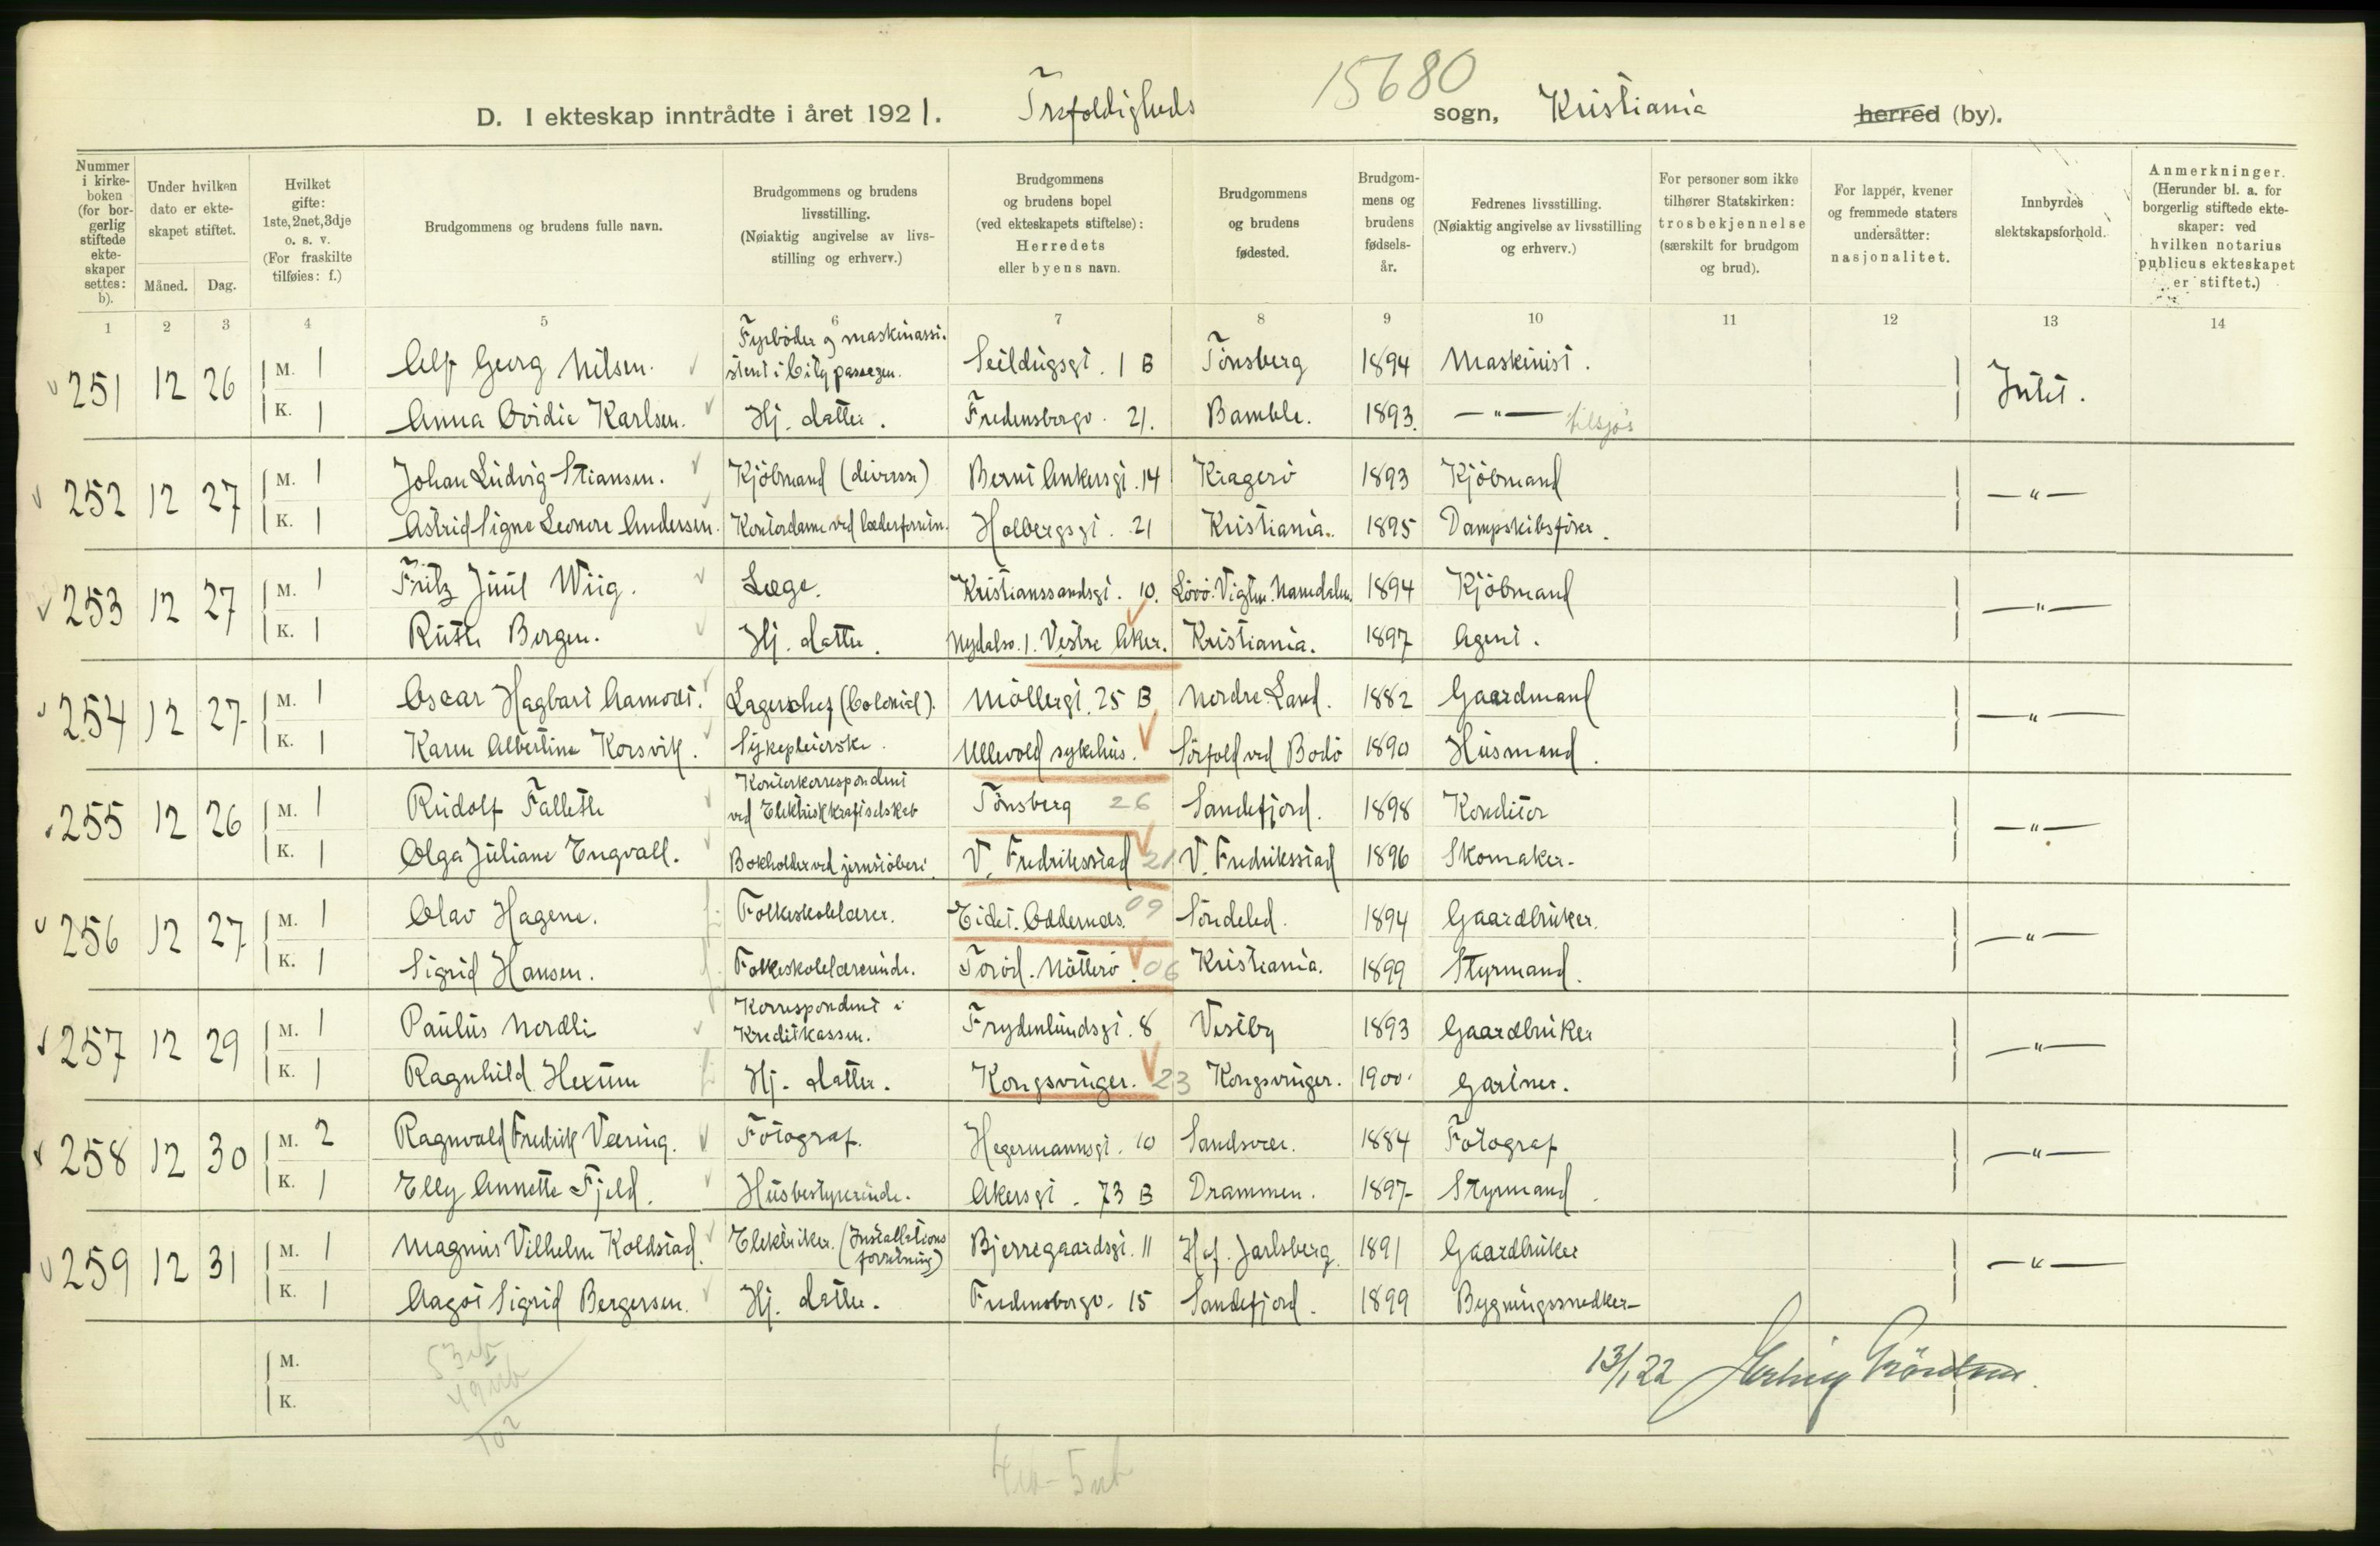 15680
D. I ekteskap inntrådte i året 1921. Trefoldigheds sogn, Kristiania herred (by).
Nummer i kirke-boken (for bor-gerlig stiftede ekte-skaper settes: b).
Under hvilken dato er ekte-skapet stiftet.
Måned. Dag.
Hvilket gifte: 1ste, 2net, 3dje o. s. v. (For fraskilte tilføies: f.)
Brudgommens og brudens fulle navn.
Brudgommens og brudens livsstilling. (Nøiaktig angivelse av livs-stilling og erhverv.)
Brudgommens og brudens bopel (ved ekteskapets stiftelse): Herredets eller byens navn.
Brudgommens og brudens fødested.
Brudgom-mens og brudens fødsels-år.
Fedrenes livsstilling. (Nøiaktig angivelse av livsstilling og erhverv.)
For personer som ikke tilhører Statskirken: trosbekjennelse (særskilt for brudgom og brud).
For lapper, kvener og fremmede staters undersåtter: nasjonalitet.
Innbyrdes slektskapsforhold.
Anmerkninger. (Herunder bl. a. for borgerlig stiftede ekte-skaper: ved hvilken notarius publicus ekteskapet er stiftet.)
1 2 3 4 5 6 7 8 9 10 11 12 13 14
251 12 26 M. 1 Alf Georg Nilsen. Fyrböder og maskinassi-stent i City passagen. Seildugsgt. 1 B Tönsberg 1894 Maskinist. Intet.
K. 1 Anna Ovidie Karlsen. Hj. datter. Fredensborgv. 21. Bamble. 1893. —"— tilsjös
252 12 27 M. 1 Johan Ludvig Stiansen. Kjöbmand (diverse) Bernt Ankersgt. 14 Kragerö 1893 Kjöbmand —"—
K. 1 Astrid Signe Leonore Andersen. Kontordame ved læderforretn. Holbergsgt. 21 Kristiania. 1895 Dampskibsfører.
253 12 27 M. 1 Fritz Juul Wiig. Læge. Kristianssandsgt. 10. Lövö. Vigten. Namdalen. 1894 Kjöbmand —"—
K. 1 Ruth Bergen. Hj. datter. Nydalsv. 1. Vestre Aker. Kristiania. 1897 Agent.
254 12 27 M. 1 Oscar Hagbart Aamodt. Lagerchef (Colonial). Möllergt. 25 B Nordre Land. 1882 Gaardmand —"—
K. 1 Karen Albertine Korsvik. Sykepleierske. Ullevold sykehus. Sörfold ved Bodö 1890 Husmand.
255 12 26 M. 1 Rudolf Falleth Kontorkorrespondent ved Elektrisk kraftselskab Tönsberg 26 Sandefjord. 1898 Konditor —"—
K. 1 Olga Juliane Engvall. Bokholder ved jernstöberi. V. Fredriksstad 21 V. Fredriksstad 1896 Skomaker.
256 12 27 M. 1 Olav Hagene. Folkeskolelærer. Eidet. Oddernes. 09 Söndeled. 1894 Gaardbruker. —"—
K. 1 Sigrid Hansen. Folkeskolelærerinde. Toröd. Nötterö. 06 Kristiania. 1899 Styrmand.
257 12 29 M. 1 Paulus Nordli Korrespondent i Kreditkassen. Frydenlundsgt. 8 Vestby 1893 Gaardbruker —"—
K. 1 Ragnhild Hexum Hj. datter. Kongsvinger. 23 Kongsvinger. 1900 Gartner.
258 12 30 M. 2 Ragnvald Fredrik Væring. Fotograf. Hegermannsgt. 10 Sandsvær. 1884 Fotograf —"—
K. 1 Elly Annette Fjeld. Husbestyrerinde. Akersgt. 73 B Drammen. 1897 Styrmand.
259 12 31 M. 1 Magnus Vilhelm Koldstad. Elektriker. (Installations forretning) Bjerregaardsgt. 11 Hof. Jarlsberg. 1891 Gaardbruker —"—
K. 1 Aagot Sigrid Bergersen. Hj. datter. Fredensborgv. 15 Sandefjord. 1899 Bygningssnedker
M.
K.
13/1 22
102